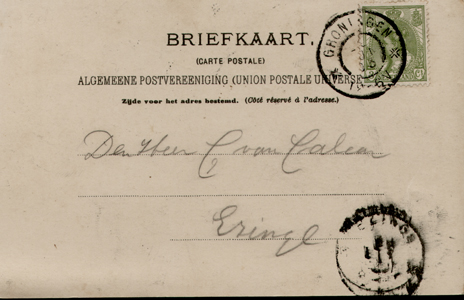 BRIEFKAART.
(CARTE POSTALE)
ALGEMEENE POSTVEREENIGING (UNION POSTALE UNIVERSE
Zijde voor het adres bestemd. (Côté réservé à l'adresse.)
GRONINGEN
Den Heer C van Calcar
Ezinge
EZINGE